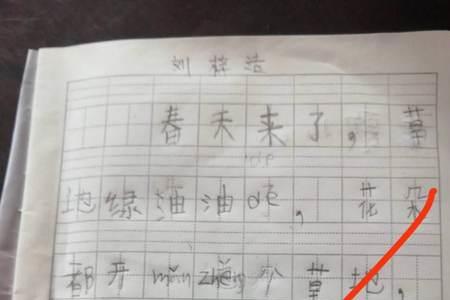 刘梓浩
春天来了,草
地绿油油de,花朵
都开mǎn zhěng个草地。